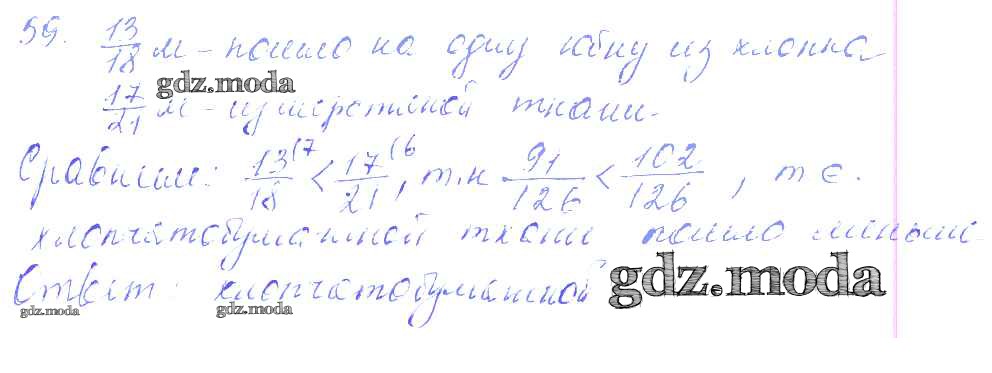 59. 13/18 м - пошло на одну юбку из хлопка
gdz.moda
17/21 м - из шерстяной ткани.
Сравним: 13(7/18 < 17(6/21, т.к 91/126 < 102/126, т е.
хлопчатобумажной ткани пошло меньше
Ответ: хлопчатобумажной gdz.moda
gdz.moda gdz.moda